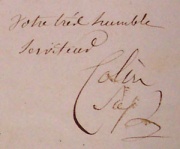 Votre très humble
Serviteur
Colin